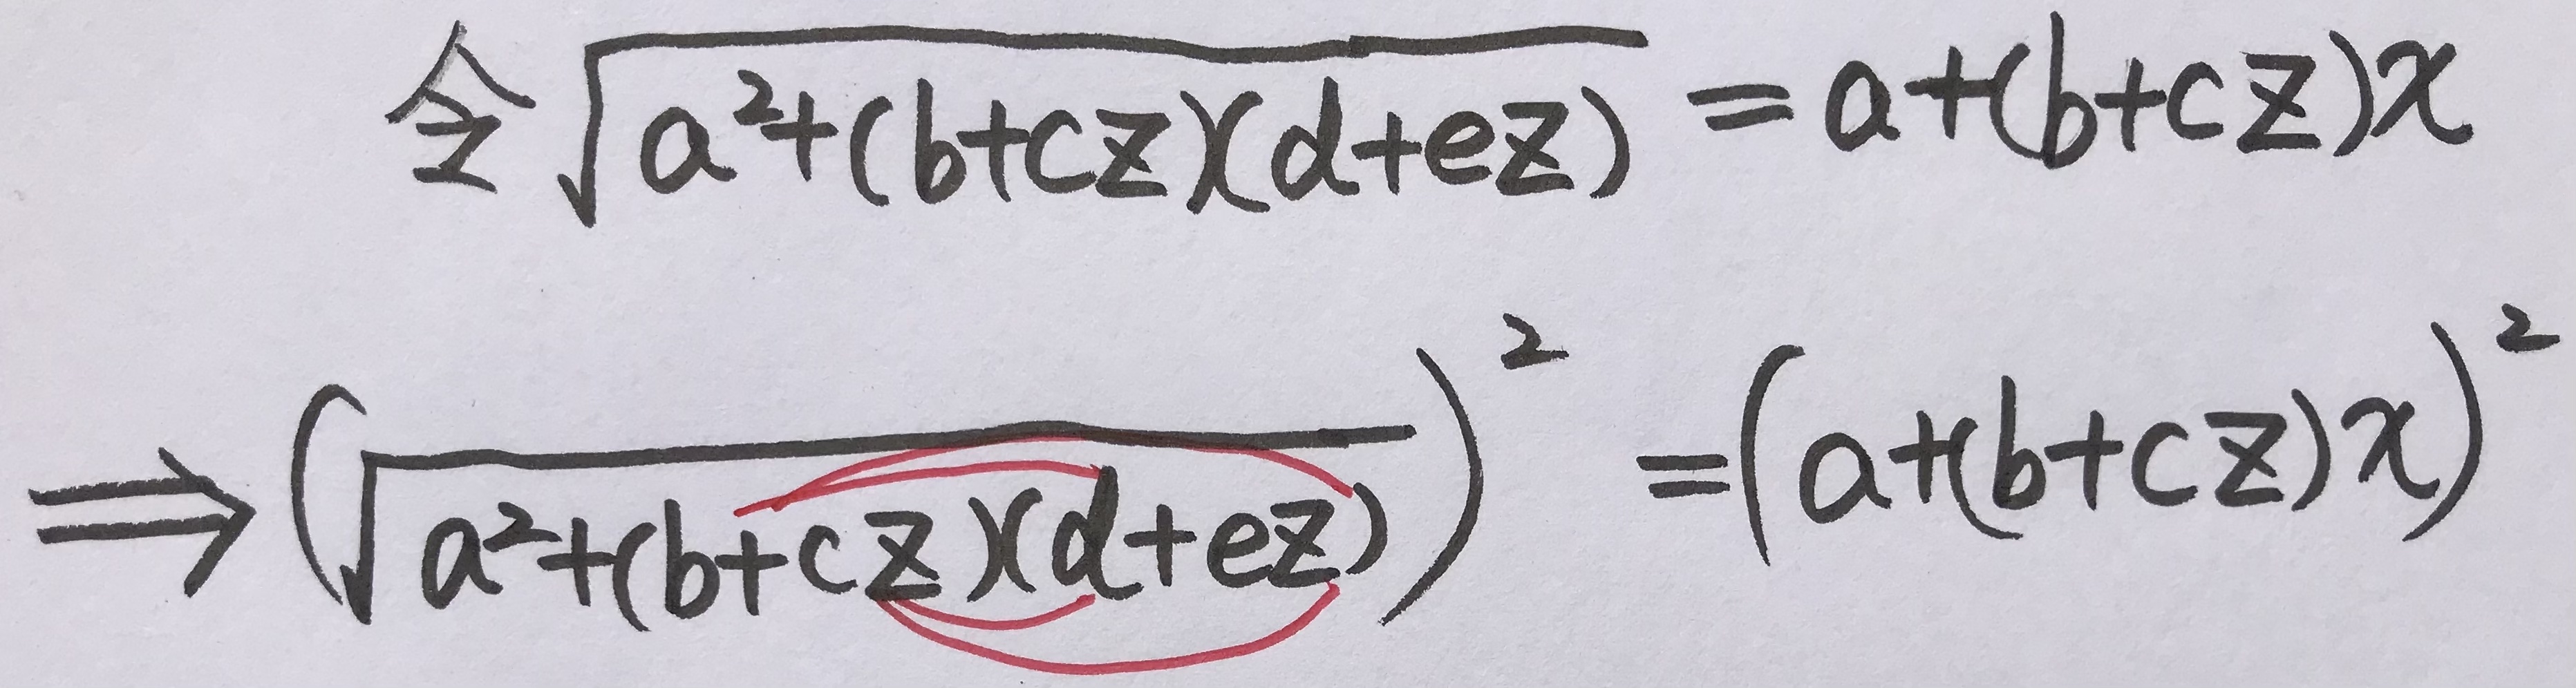 令√(a²+(b+cz)(d+ez)) = a+(b+cz)x
⇒ (√(a²+(b+cz)(d+ez)))² = (a+(b+cz)x)²